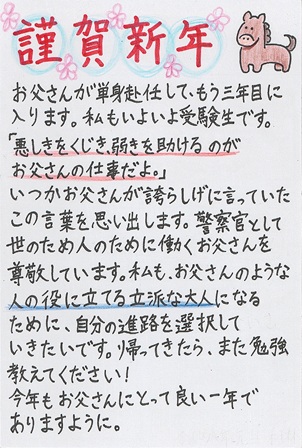 謹賀新年
お父さんが単身赴任して、もう三年目に
入ります。私もいよいよ受験生です。
「悪しきをくじき、弱きを助けるのが
お父さんの仕事だよ。」
いつかお父さんが誇らしげに言っていた
この言葉を思い出します。警察官として
世のため人のために働くお父さんを
尊敬しています。私も、お父さんのような
人の役に立てる立派な大人になる
ために、自分の進路を選択して
いきたいです。帰ってきたら、また勉強
教えてください!
今年もお父さんにとって良い一年で
ありますように。